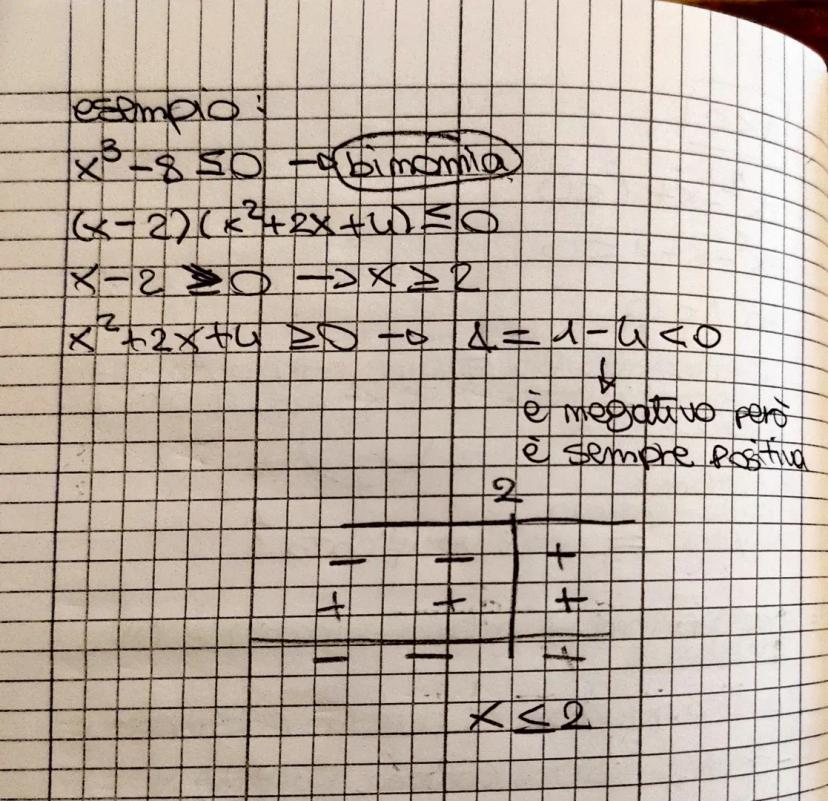 esempio:
x³-8≤0 → binomia
(x-2)(x²+2x+4)≤0
x-2 ≥0 → x≥2
x²+2x+4 ≥0 → Δ=1-4<0
↓
è negativo però
è sempre positiva
2
- - +
+ + +
- - +
x≤2